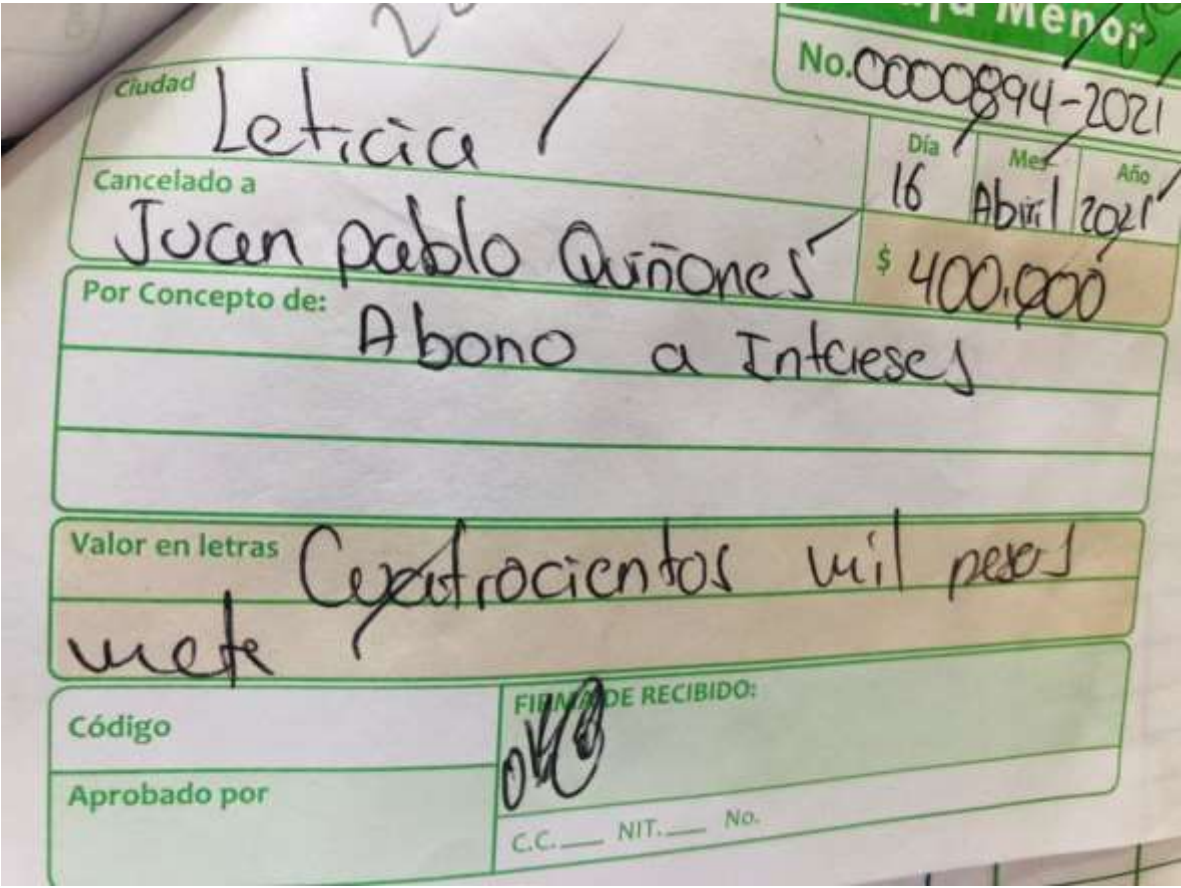 Menor
No. 0000894-2021
Ciudad Leticia
Día Mes Año
16 Abril 2021
Cancelado a
Juan pablo Quiñones
$ 400.000
Por Concepto de: Abono a Intereses
Valor en letras Cuatrocientos mil pesos
mcte
Código
FIRMA DE RECIBIDO:
Aprobado por
C.C.___ NIT.___ No.